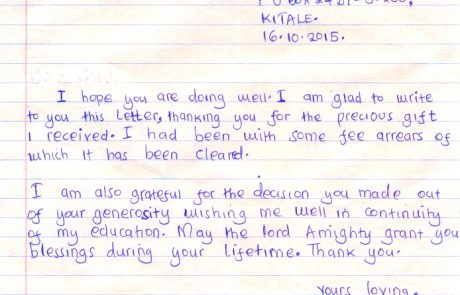 KITALE.
16.10.2015.
I hope you are doing well. I am glad to write
to you this Letter, thanking you for the precious gift
I received. I had been with some fee arrears of
which it has been cleared.
I am also grateful for the decision you made out
of your generosity wishing me well in continuity
of my education. May the lord Almighty grant you
blessings during your lifetime. Thank you.
yours loving.